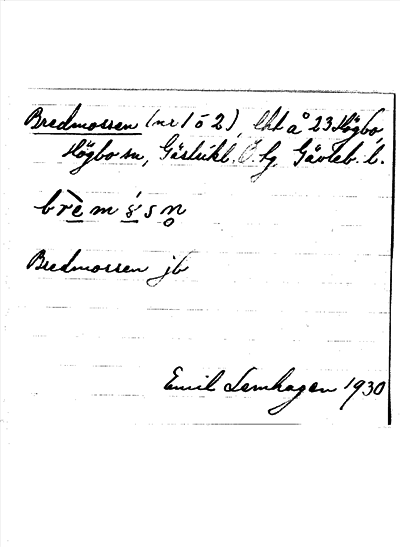 Bredmossen (nr 1 o 2), lht å 23 Högbo,
Högbo sn, Gästrikl. Ö. tg Gävleb. l.
brèmśsn̥
Bredmossen jb
Emil Lemhagen 1930